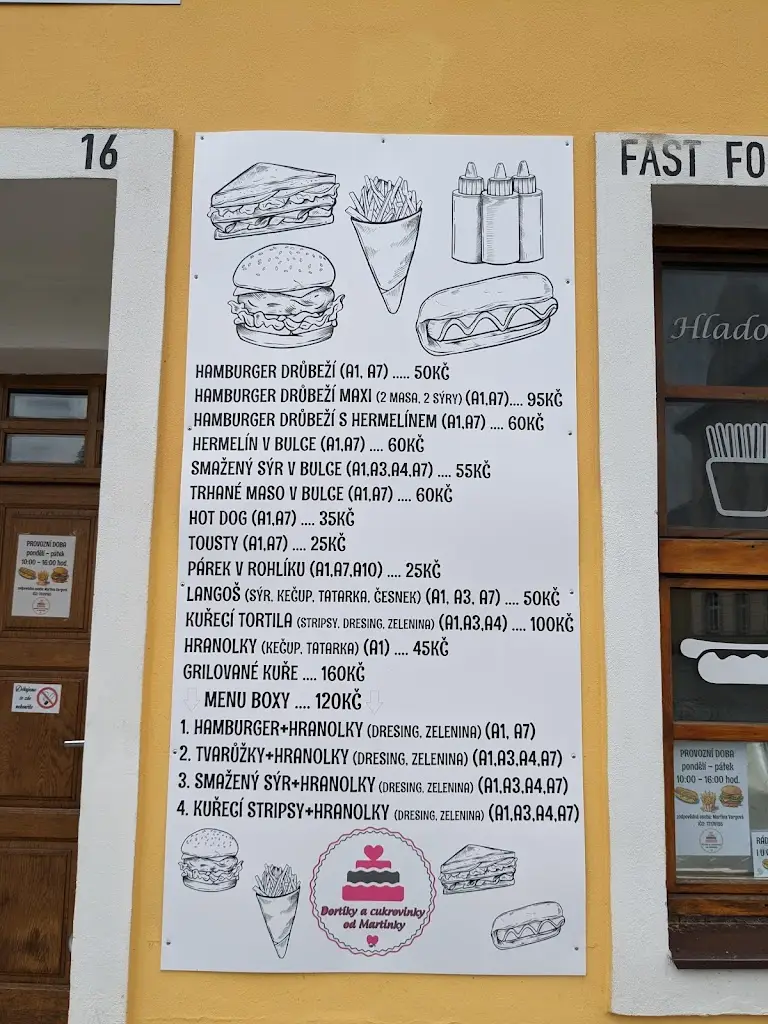 16
FAST FO
HAMBURGER DRŮBEŽÍ (A1, A7) ..... 50KČ
HAMBURGER DRŮBEŽÍ MAXI (2 MASA, 2 SÝRY) (A1,A7).... 95KČ
HAMBURGER DRŮBEŽÍ S HERMELÍNEM (A1,A7) .... 60KČ
HERMELÍN V BULCE (A1,A7) .... 60KČ
SMAŽENÝ SÝR V BULCE (A1,A3,A4,A7) .... 55KČ
TRHANÉ MASO V BULCE (A1,A7) .... 60KČ
HOT DOG (A1,A7) .... 35KČ
TOUSTY (A1,A7) .... 25KČ
PÁREK V ROHLÍKU (A1,A7,A10) .... 25KČ
LANGOŠ (SÝR, KEČUP, TATARKA, ČESNEK) (A1, A3, A7) .... 50KČ
KUŘECÍ TORTILA (STRIPSY, DRESING, ZELENINA) (A1,A3,A4) .... 100KČ
HRANOLKY (KEČUP, TATARKA) (A1) .... 45KČ
GRILOVANÉ KUŘE .... 160KČ
MENU BOXY .... 120KČ
1. HAMBURGER+HRANOLKY (DRESING, ZELENINA) (A1, A7)
2. TVARŮŽKY+HRANOLKY (DRESING, ZELENINA) (A1,A3,A4,A7)
3. SMAŽENÝ SÝR+HRANOLKY (DRESING, ZELENINA) (A1,A3,A4,A7)
4. KUŘECÍ STRIPSY+HRANOLKY (DRESING, ZELENINA) (A1,A3,A4,A7)
Dortíky a cukrovinky
od Martinky
PROVOZNÍ DOBA
pondělí – pátek
10:00 – 16:00 hod.
Děkujeme
že zde
nekouříte
Hlado
PROVOZNÍ DOBA
pondělí – pátek
10:00 – 16:00 hod.
odpovědná osoba: Martina Vargová